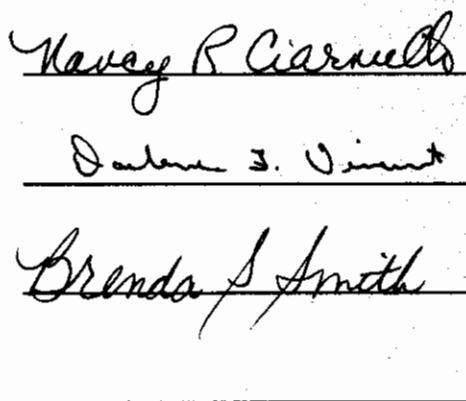 Nancy R Ciarniello
Darlene F. Vincent
Brenda S Smith